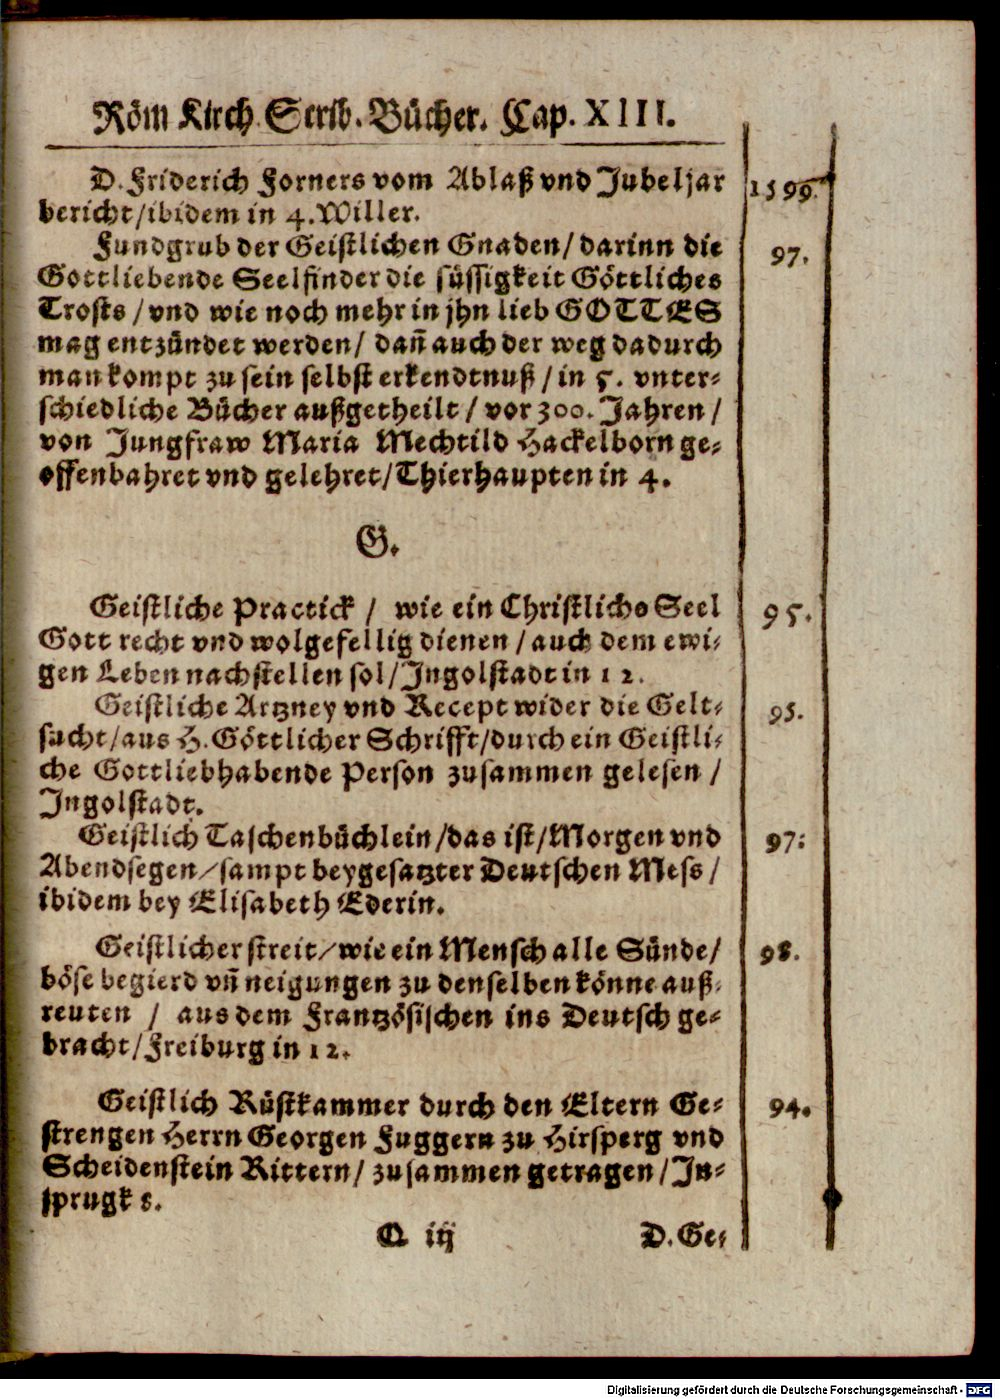 Röm Kirch Scrib. Bücher. Cap. XIII.
D. Friderich Forners vom Ablaß vnd Jubeljar 1599.
bericht/ibidem in 4. Willer.
Fundgrub der Geistlichen Gnaden/darinn die 97.
Gottliebende Seel finder die süssigkeit Göttliches
Trosts/vnd wie noch mehr in jhn lieb GOTTES
mag entzündet werden/ dañ auch der weg dadurch
man kompt zu sein selbst erkendtnuß/in 5. vnter-
schiedliche Bücher außgetheilt/vor 300. Jahren/
von Jungfraw Maria Mechtild Hackelborn ge-
offenbahret vnd gelehret/Thierhaupten in 4.
G.
Geistliche Practick/ wie ein Christliche Seel 95.
Gott recht vnd wolgefellig dienen/auch dem ewi-
gen Leben nachstellen sol/Ingolstadt in 12.
Geistliche Artzney vnd Recept wider die Gelt- 95.
sucht/aus H. Göttlicher Schrifft/durch ein Geistli-
che Gottliebhabende Person zusammen gelesen/
Ingolstadt.
Geistlich Taschenbüchlein/das ist/Morgen vnd 97.
Abendsegen/sampt beygesatzter Deutschen Mess/
ibidem bey Elisabeth Ederin.
Geistlicher streit/wie ein Mensch alle Sünde/ 98.
böse begierd vñ neigungen zu denselben könne auß-
reuten / aus dem Frantzösischen ins Deutsch ge-
bracht/Freiburg in 12.
Geistlich Rüstkammer durch den Eltern Ge- 94.
strengen Herrn Georgen Fuggern zu Hirsperg vnd
Scheidenstein Rittern/zusammen getragen/In-
sprugk 8.
Q iij D. Ge-
Digitalisierung gefördert durch die Deutsche Forschungsgemeinschaft - DFG